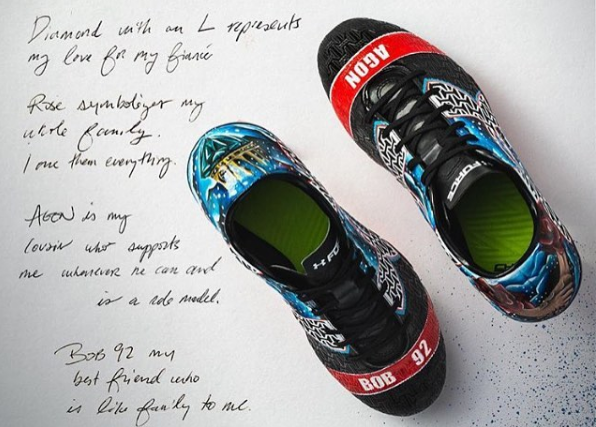 Diamond with an L represents
my love for my fiancé
Rose symbolizes my
whole family.
I owe them everything.
AGON is my
cousin who supports
me whenever he can and
is a role model.
BOB 92 my
best friend who
is like family to me.
AGON
FORCE
BOB 92